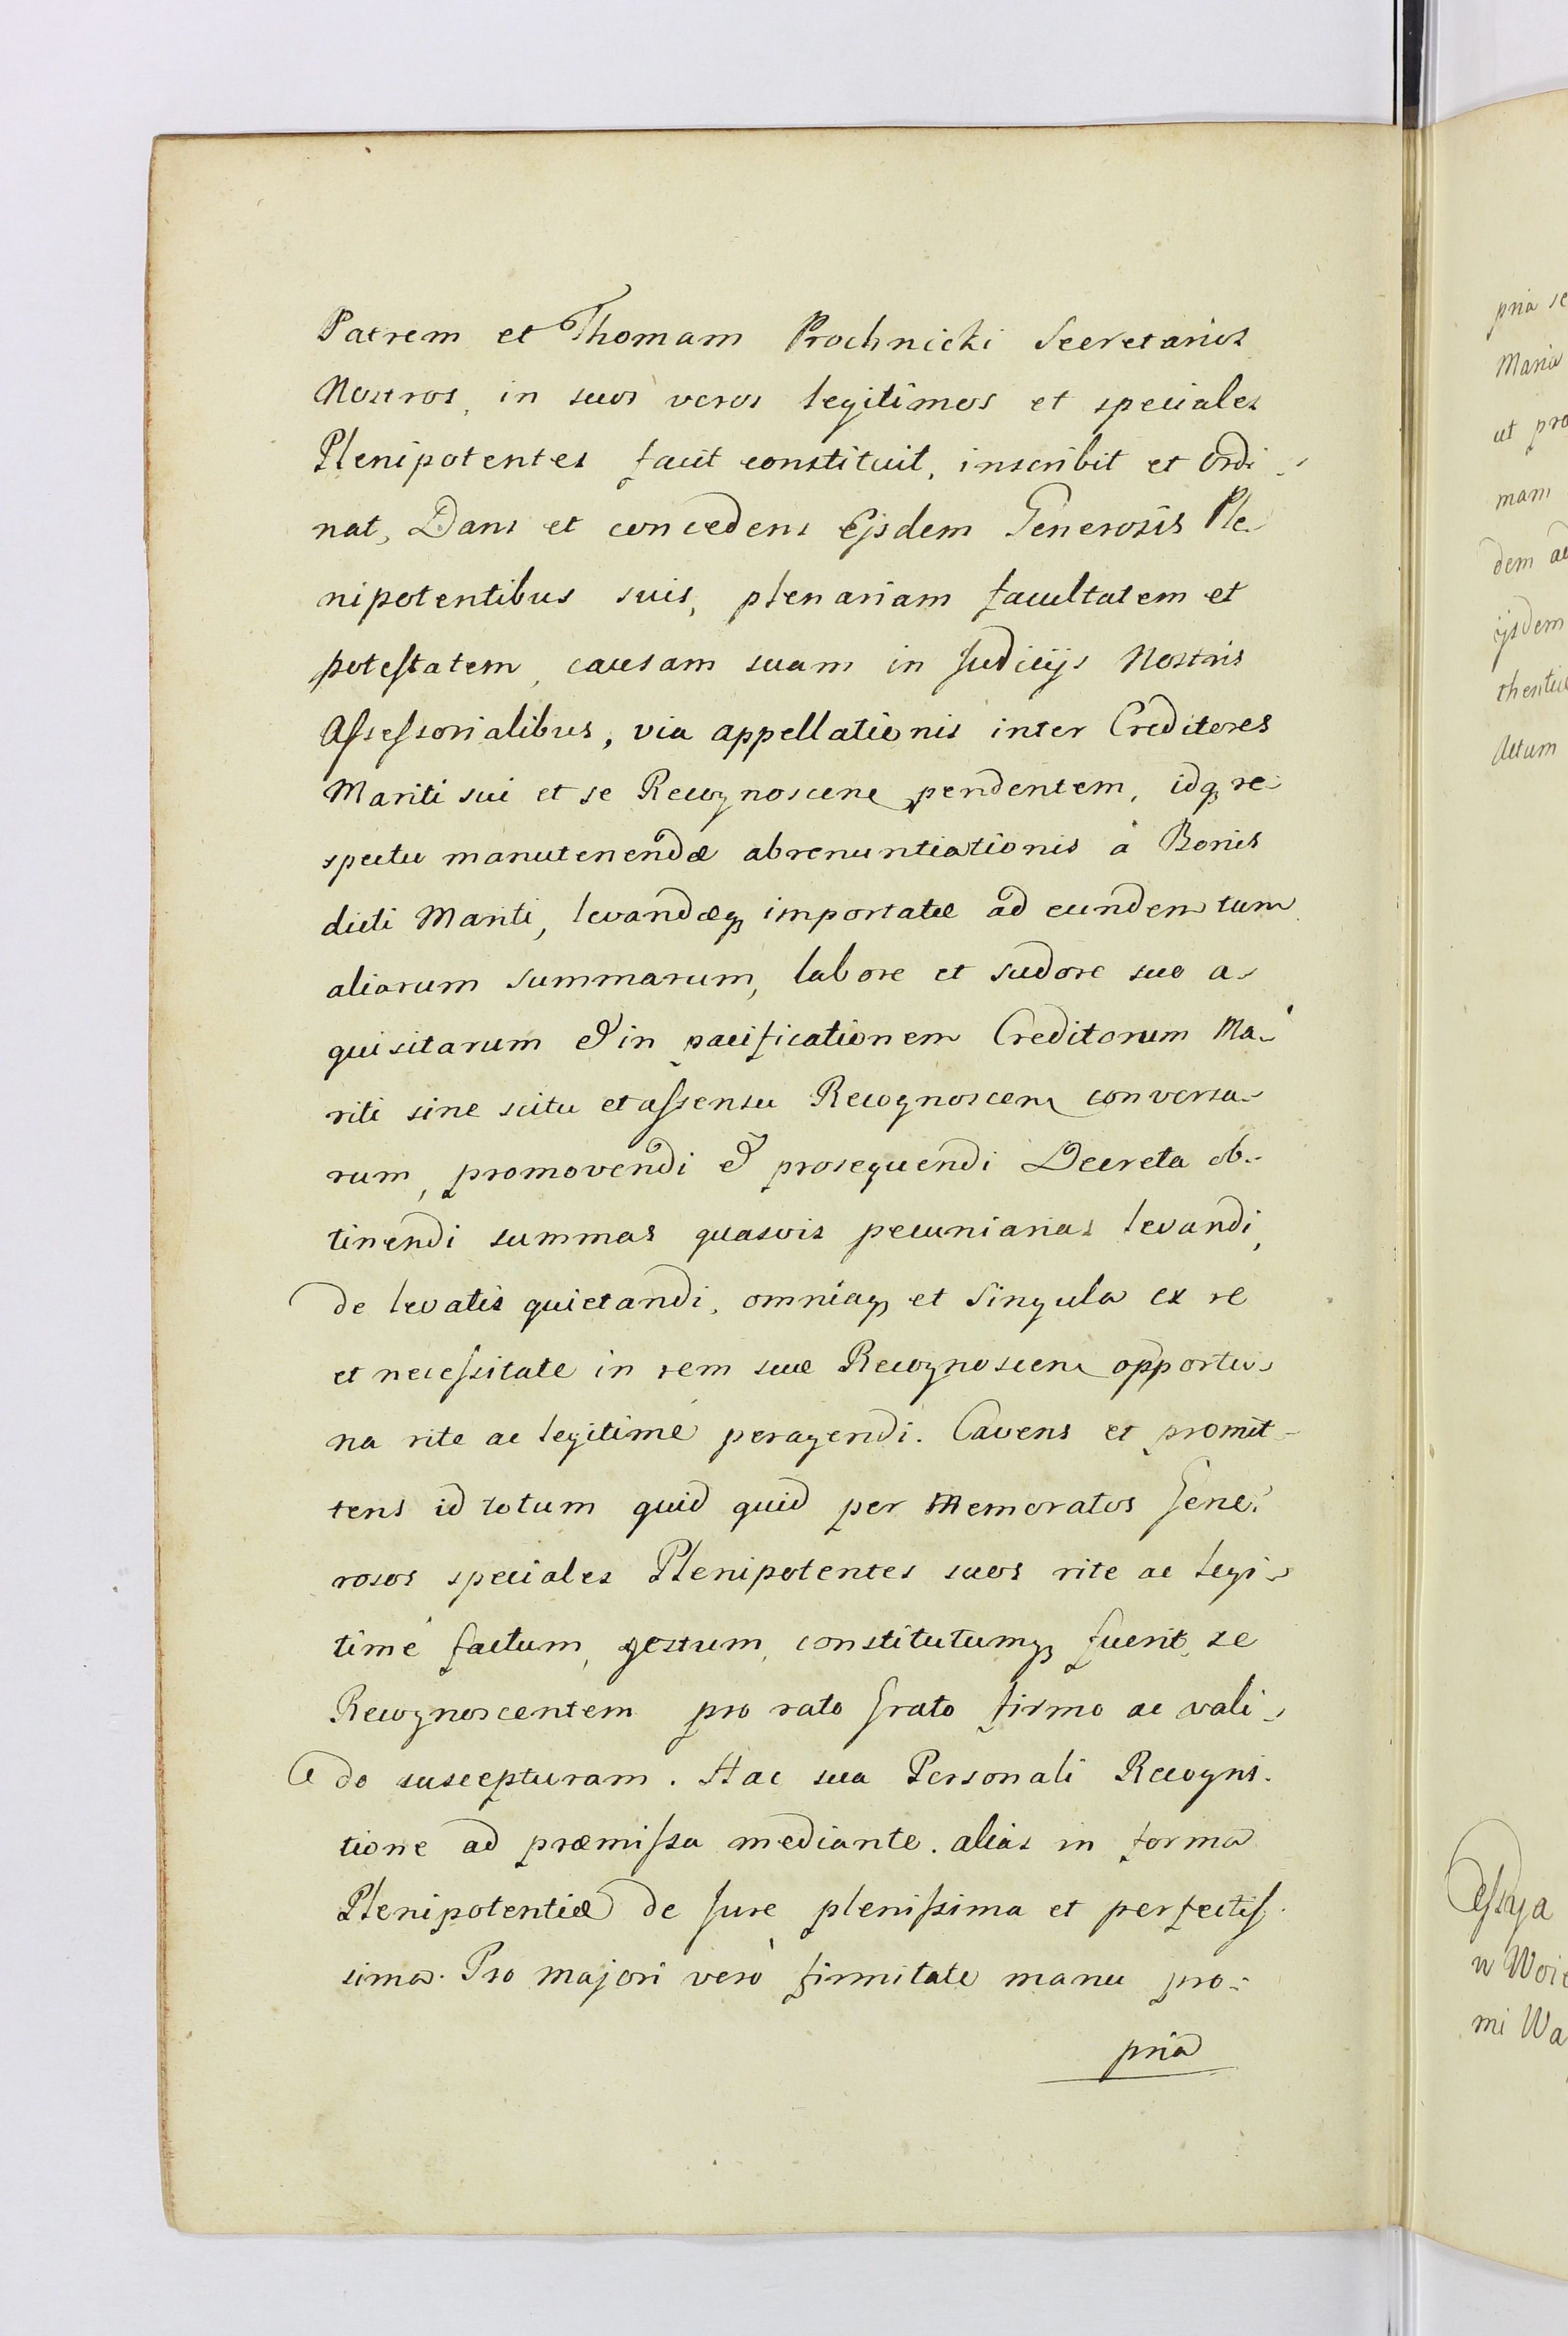 Patrem et Thomam Prochnicki Secretarios
Nostros, in suos veros legitimos et speciales
Plenipotentes facit constituit, inscribit et Ordi-
nat, Dans et concedens Ejsdem Generosis Ple
nipotentibus suis, plenariam facultatem et
potestatem, causam suam in Judicijs Nostris
Assessorialibus, via appellationis inter Creditores
Mariti sui et se Recognoscene pendentem, idq re-
spectu manutenendæ abrenuntiationis à Bonis
dicti Mariti, levandæq importatæ ad eundem tum
aliarum summarum, labore et sudore suo a-
quisitarum & in pacificationem Creditorum Ma-
riti sine scitu et assensu Recognoscene conversa-
rum, promovendi & prosequendi Decreta ob-
tinendi summas quasvis pecuniarias levandi,
de levatis quietandi, omniaq et Singula ex re
et necessitate in rem suæ Recognoscene opportu-
na rite ac legitimè peragendi. Cavens et promit-
tens id totum quid quid per Memoratos Gene-
rosos speciales Plenipotentes suos rite ac legi-
timè factum, gestum, constitutumq fuerit, se
Recognoscentem pro rato grato firmo ac vali-
do suscepturam. Hac sua Personali Recogni-
tione ad præmissa mediante. alias in forma
Plenipotentiæ de Jure plenissima et perfectis-
sima. Pro majori verò firmitate manu pro-
pria
pria se
Maria
ut pro
mam
dem ac
ijsdem
thentic
Actum
Cessya
w Woie
mi Wa